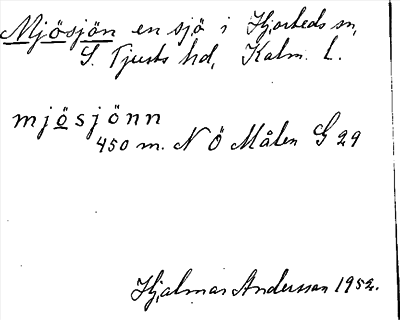 Mjösjön en sjö i Hjorteds sn,
S. Tjusts hd, Kalm. L.
mjösjönn
450 m. N Ö Målen G 29
Hjalmar Andersson 1952.